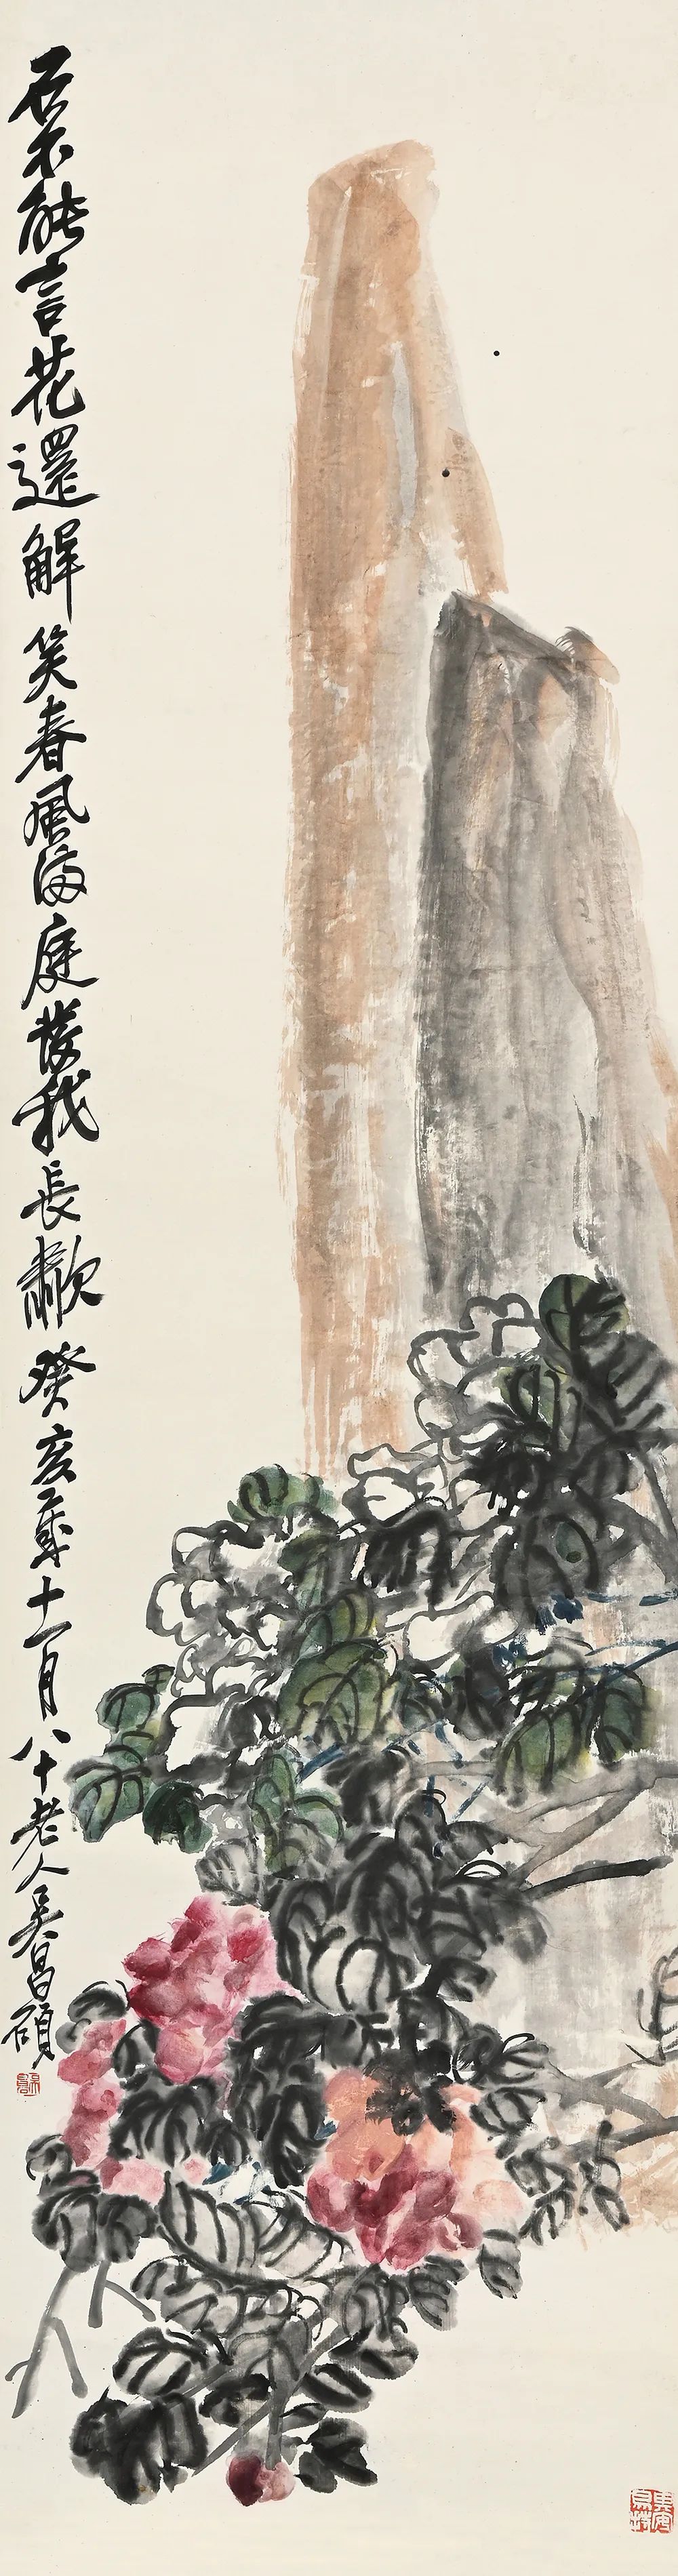 石不能言花還解笑春風滿庭發我長歗癸亥歲十一月八十老人吳昌碩